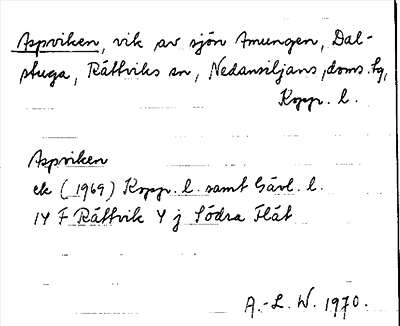 Aspviken, vik av sjön Amungen, Dal-
stuga, Rättviks sn, Nedansiljans, doms. tg,
Kopp. l.
Aspviken
ek (1969) Kopp. l. samt Gävl. l.
14 F Rättvik 4 j Södra Flät
A.-L. W. 1970.